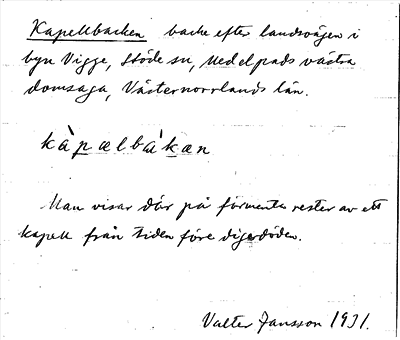 Kapellbacken backe efter landsvägen i
byn Vigge, Stöde sn, Medelpads västra
domsaga, Västernorrlands län.
kàpælbàkan
Man visar där på förmenta rester av ett
kapell från tiden före digerdöden.
Valter Jansson 1931.